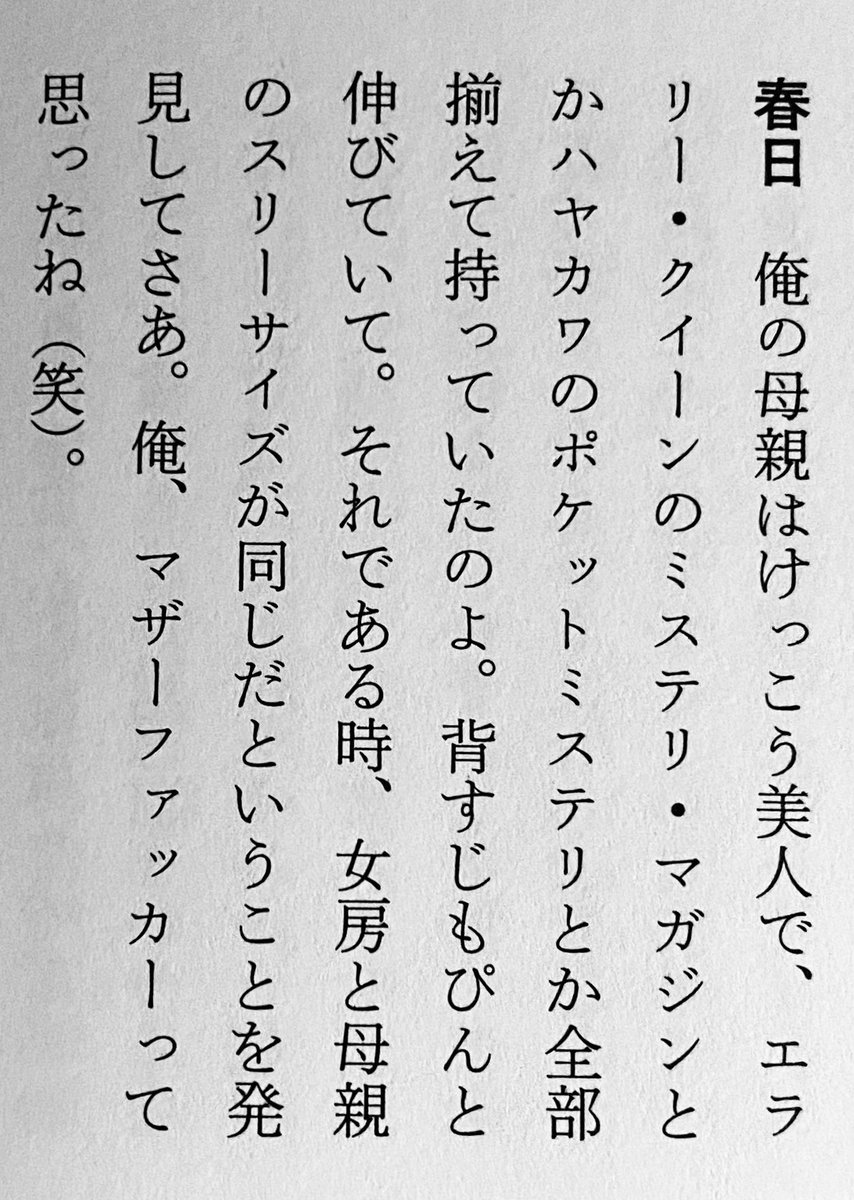 春日　俺の母親はけっこう美人で、エラ
リー・クイーンのミステリ・マガジンと
かハヤカワのポケットミステリとか全部
揃えて持っていたのよ。背すじもぴんと
伸びていて。それである時、女房と母親
のスリーサイズが同じだということを発
見してさあ。俺、マザーファッカーって
思ったね（笑）。